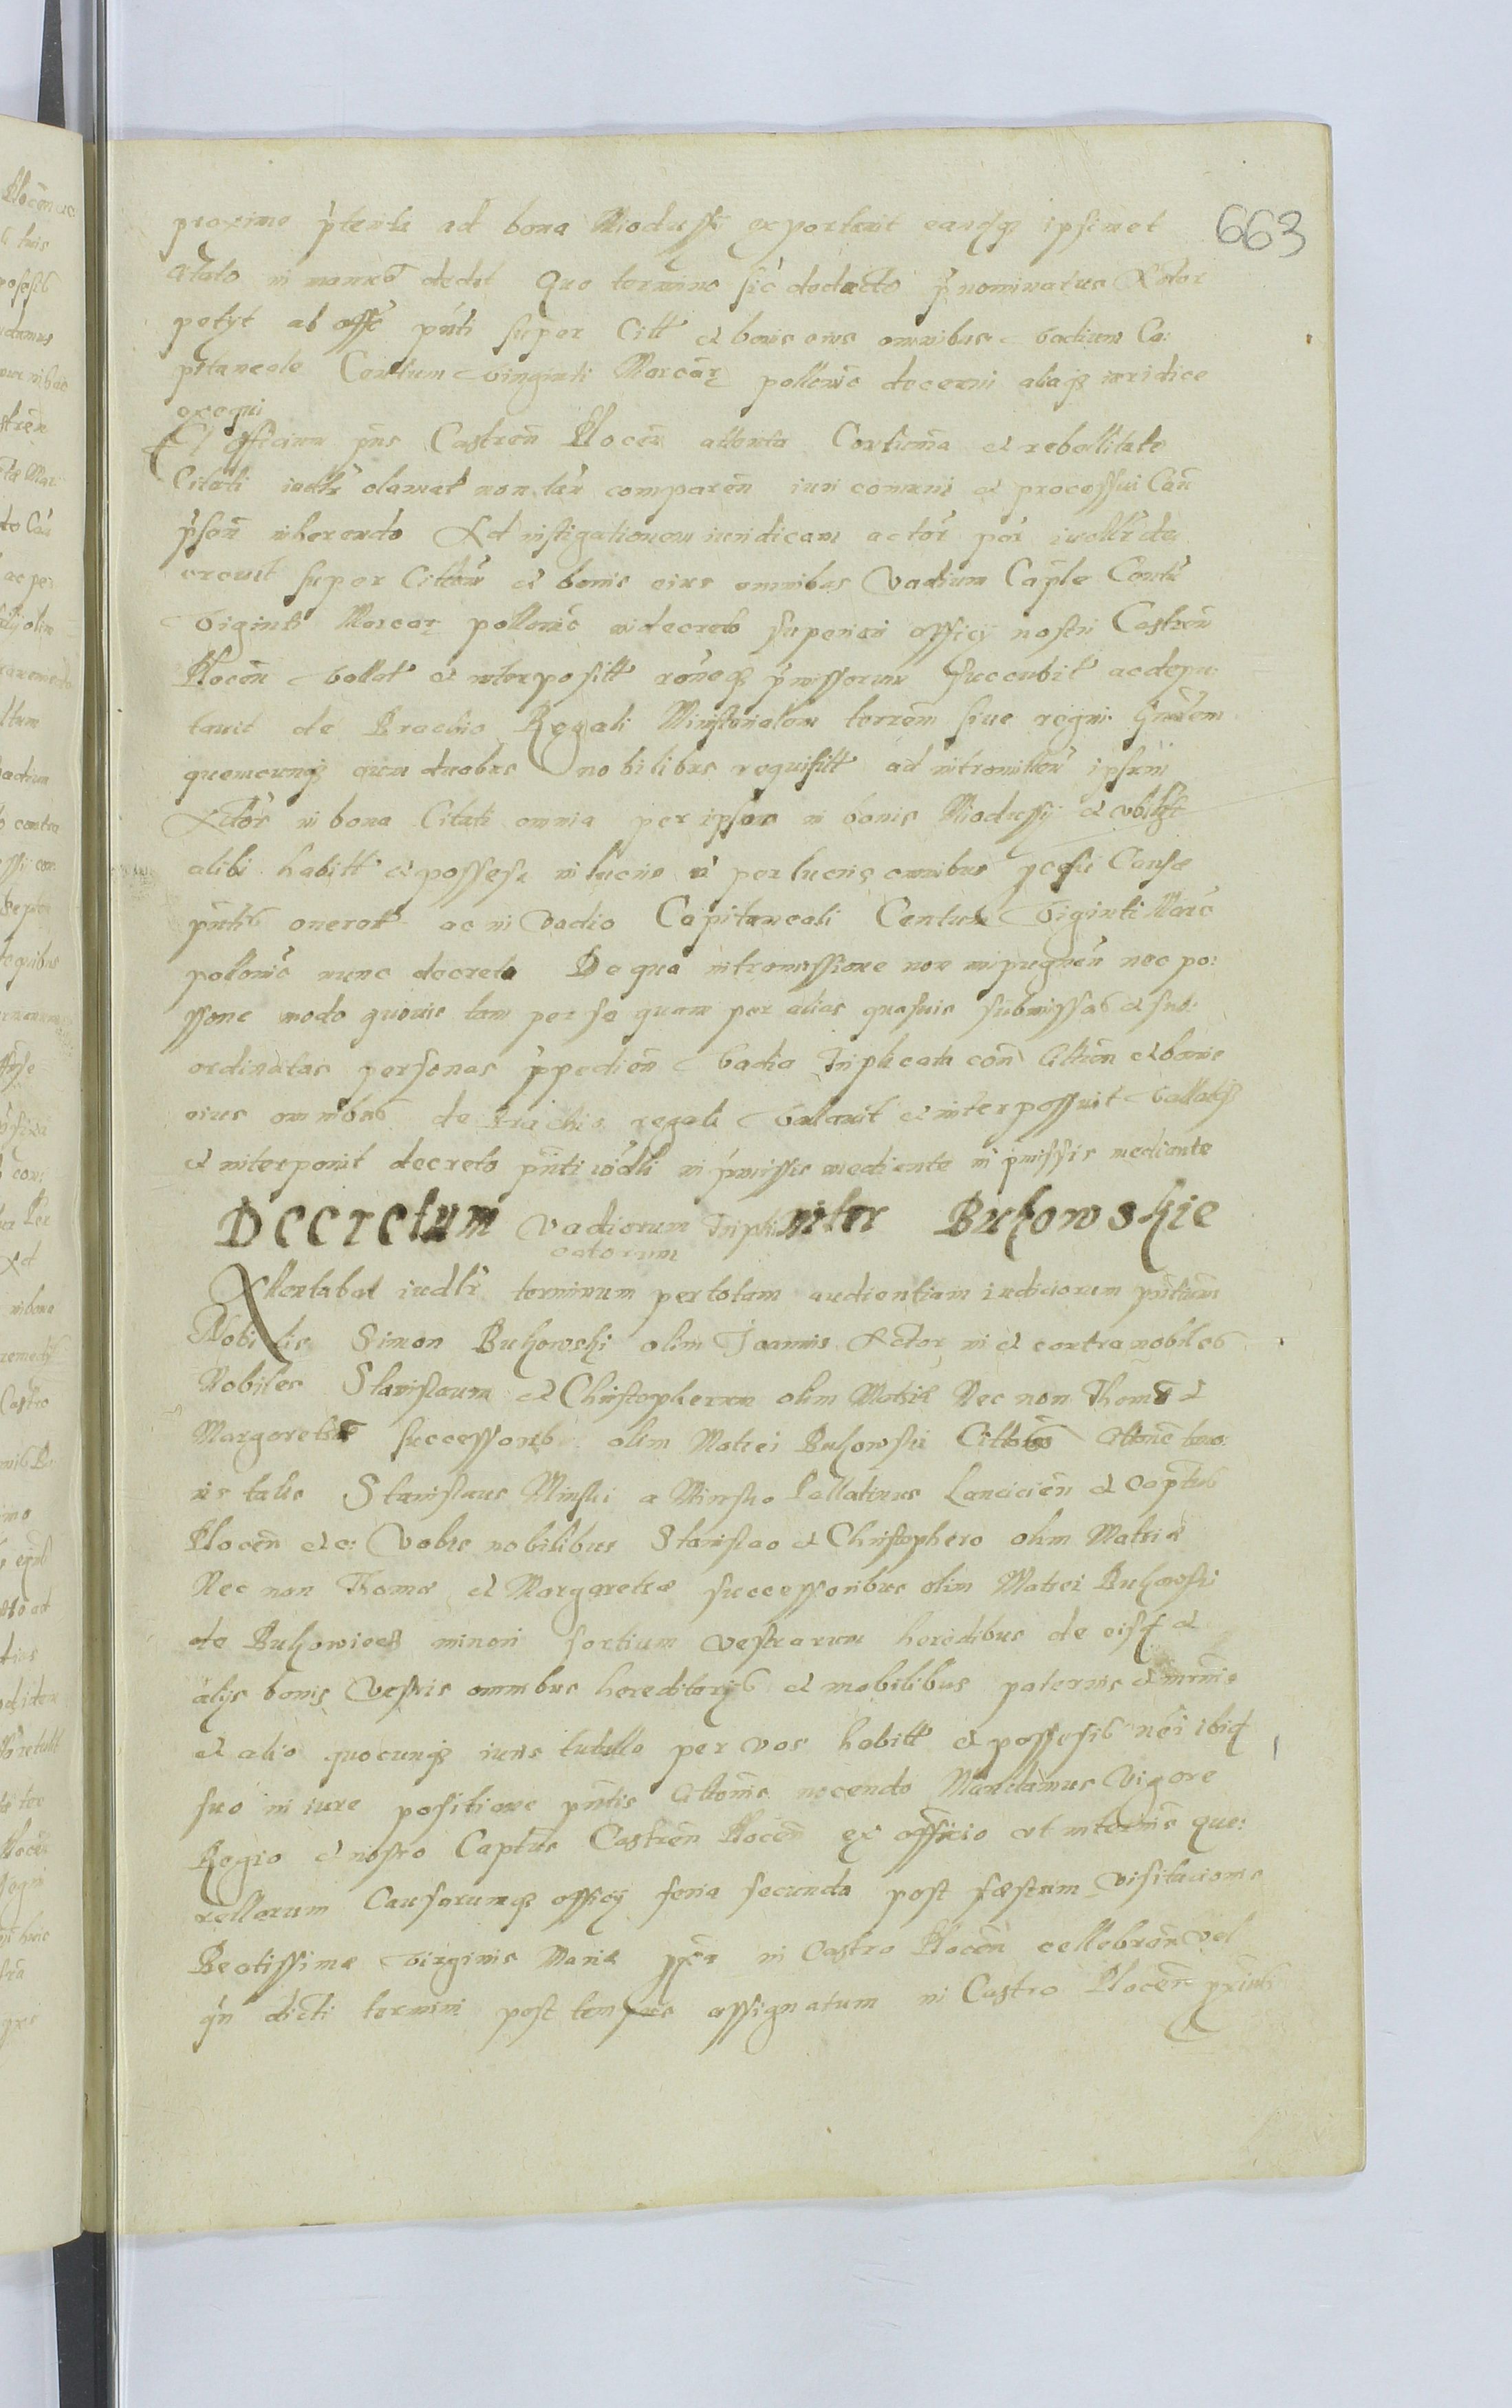 663
proximo pterita ad bona Miodussi exportavit eandq ipsimet
Citato in manus dedit Quo termino sic dedacto pnominatus Actor
petyt ab offo pnti super Citt et bonis eius omnibus vadium Ca:
pitaneale Centum vinginti Marcar pollonic decerni aliaq iuridice
exequi
Et Officium pns Castren Plocen attenta Contuma et rebellitate
Citati iudlr clamat non tan comparen iuri comuni et processui Cau
pson inherendo Ad instigationem iuridicam actor por
crevit super Cittum et bonis eius omnibus Vadium Caple Centu
Viginti Marcar pollonic in decreto superiori officy nostri Castren
Plocen vallat et interpositt roneq pmissorum succubit ac depu
tavit de Brachio Regali Ministerialem terrem sive regni Gnralem
quemcunq cum duobus nobilibus requisitt ad intromitten ipsum
Actor in bona Citati omnia per ipsum in bonis Miodussy et ubilibt
alibi habitt et possessa in lucris et per lucris omnibus pcessu Causæ
pntis onerat ac in Vadio Capitaneali Centum Viginti Marc
polonic nunc decreto De qua intromissione non impugnen nec po:
ssone modo quovis tam per se quam per alias quasvis submissas et sub:
ordinatas personas ppedien Vadia Triplicata con Cittum et bonis
eius omnibus de Brachio regali vallavit et interpossuit vallatq
et interponit decreto pnti iudli in pmissis mediante in pmissis mediante
Decretum Vadiorum Triplicatorum inter Bukowskie
Attentabat iudlr terminum per totam audientiam iudiciorum pntium
Nobilis Simon Bukowski olim Joannis Actor in et contra nobiles
Nobiles Stanislaum et Christopherum olim Mathiæ Nec non Thomæ et
Margarethæ successorib olim Matrei Bukowski Cittos Cittonis teno:
ris talis Stanislaus Minski a Minsko Pallatinus Lancicien et Captus
Plocen etc: Vobis nobilibus Stanislao et Christophero olim Mathiæ
Nec non Thomæ et Margarethæ successoribus olim Matrei Bukowski
de Bukowiecz minori sortium vestrarum heredibus de eisq et
alijs bonis vestris omnibus hereditarijs et mobilibus paternis et mrnis
et alio quocunq iuris tutullo per vos habitt et possessis nei ibiq
suo in iure positione pntis Cittonis nocendo Mandamus Vigore
Regio et nostro Captus Castren Plocen ex officio ut in terminis que:
rellarum Causarumq officy feria secunda post festum Visitacionis
Beatissimæ Virginis Mariæ pxa in Castro Plocen cellebran vel
qn dicti termini post tempus assignatum in Castro Plocen pximis